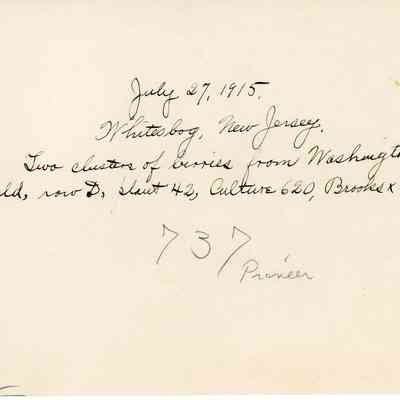 July 27, 1915.
Whitesbog, New Jersey.
Two clusters of berries from Washingto
ld, row D, plant 42, Culture 620, Brooks x
737
Pioneer